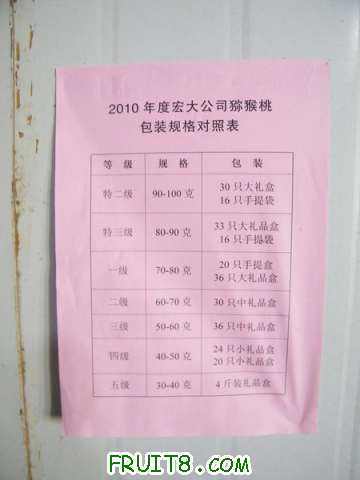 2010 年度宏大公司猕猴桃
包装规格对照表
等 级 规 格 包 装
特二级 90-100 克 30 只大礼盒
16 只手提袋
特三级 80-90 克 33 只大礼品盒
16 只手提袋
一级 70-80 克 20 只手提盒
36 只大礼品盒
二级 60-70 克 30 只中礼品盒
三级 50-60 克 36 只中礼品盒
四级 40-50 克 24 只小礼品盒
20 只小礼品盒
五级 30-40 克 4 斤装礼品盒
FRUIT8.COM